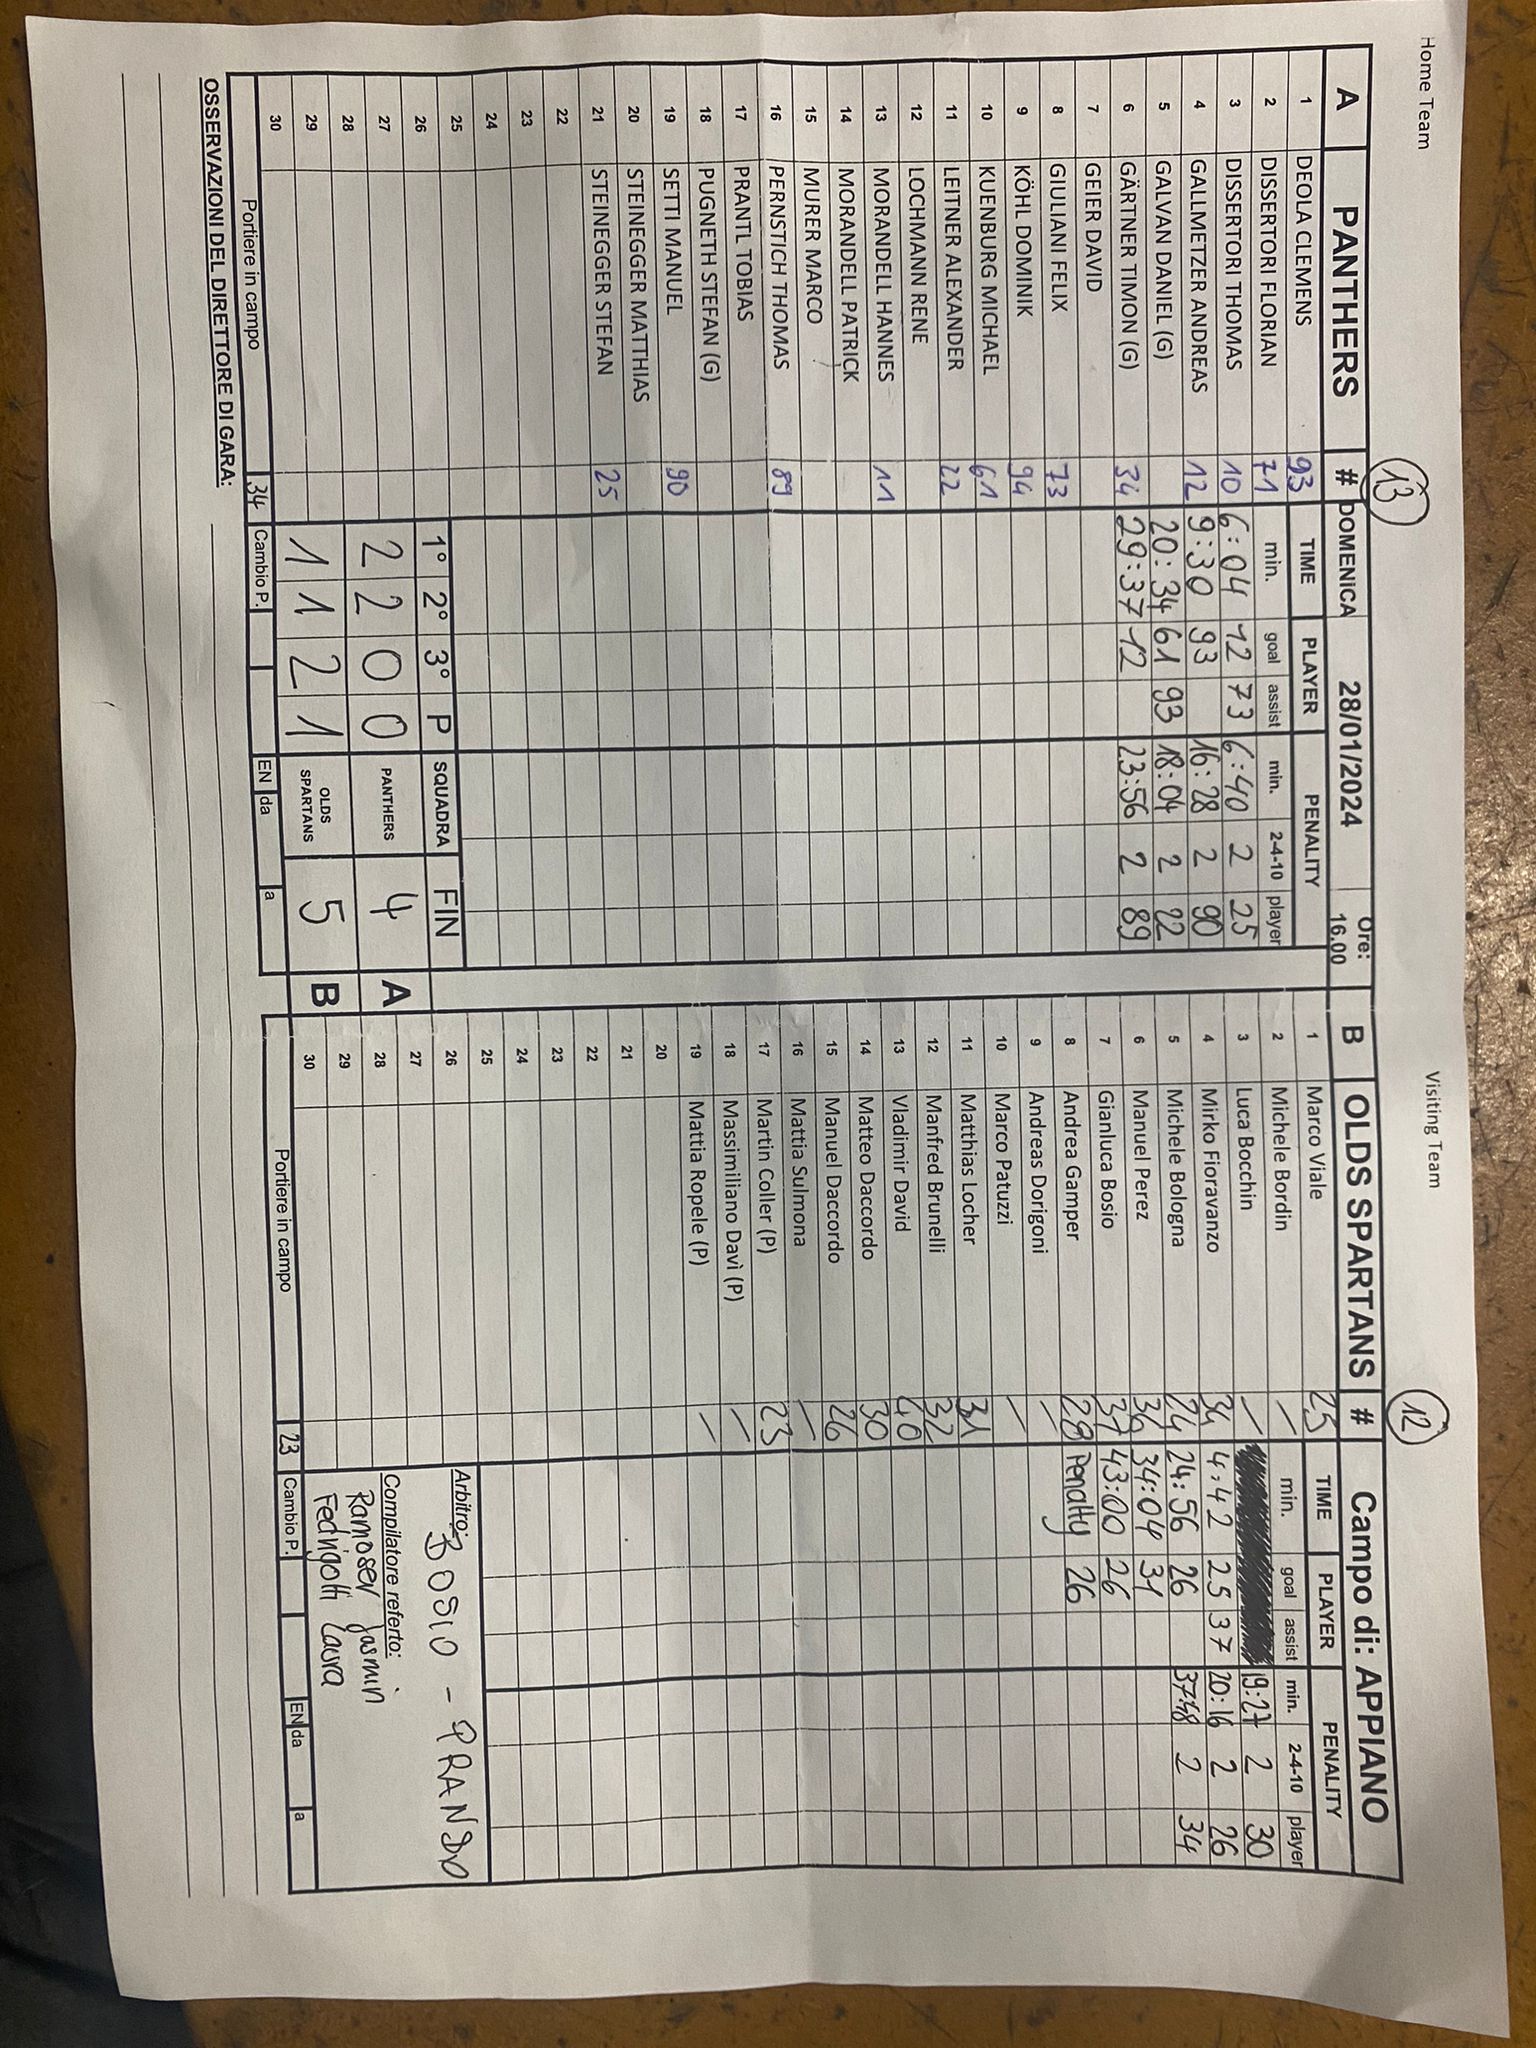 Home Team
Visiting Team
13
12
A PANTHERS # DOMENICA 28/01/2024 Ore: 16.00
TIME PLAYER PENALITY
min. goal assist min. 2-4-10 player
1 DEOLA CLEMENS 93
2 DISSERTORI FLORIAN 71
3 DISSERTORI THOMAS 10 6:04 12 73 6:40 2 25
4 GALLMETZER ANDREAS 12 9:30 93 16:28 2 90
5 GALVAN DANIEL (G) 20:34 61 93 18:04 2 22
6 GÄRTNER TIMON (G) 34 29:37 12 23:56 2 89
7 GEIER DAVID
8 GIULIANI FELIX 73
9 KÖHL DOMINIK 94
10 KUENBURG MICHAEL 61
11 LEITNER ALEXANDER 22
12 LOCHMANN RENE
13 MORANDELL HANNES 11
14 MORANDELL PATRICK
15 MURER MARCO
16 PERNSTICH THOMAS 89
17 PRANTL TOBIAS
18 PUGNETH STEFAN (G)
19 SETTI MANUEL 90
20 STEINEGGER MATTHIAS
21 STEINEGGER STEFAN 25
22
23
24
25
26
27
28
29
30
1° 2° 3° P SQUADRA FIN
2 2 0 0 PANTHERS 4 A
1 1 2 1 OLDS SPARTANS 5 B
Portiere in campo 34 Cambio P. EN da a
B OLDS SPARTANS # Campo di: APPIANO
TIME PLAYER PENALITY
min. goal assist min. 2-4-10 player
1 Marco Viale 25
2 Michele Bordin /
3 Luca Bocchin / 19:27 2 30
4 Mirko Fioravanzo 34 4:42 25 37 20:16 2 26
5 Michele Bologna 24 24:56 26 37:48 2 34
6 Manuel Perez 36 34:04 31
7 Gianluca Bosio 37 43:00 26
8 Andrea Gamper 28 Penalty 26
9 Andreas Dorigoni /
10 Marco Patuzzi /
11 Matthias Locher 31
12 Manfred Brunelli 32
13 Vladimir David 40
14 Matteo Daccordo 30
15 Manuel Daccordo 26
16 Mattia Sulmona /
17 Martin Coller (P) 23
18 Massimiliano Davì (P) /
19 Mattia Ropele (P) /
20
21
22
23
24
25
26
27
28
29
30
Arbitro: BOSIO - PRANDO
Compilatore referto:
Ramoser Jasmin
Fedrigotti Laura
Portiere in campo 23 Cambio P. EN da a
OSSERVAZIONI DEL DIRETTORE DI GARA: